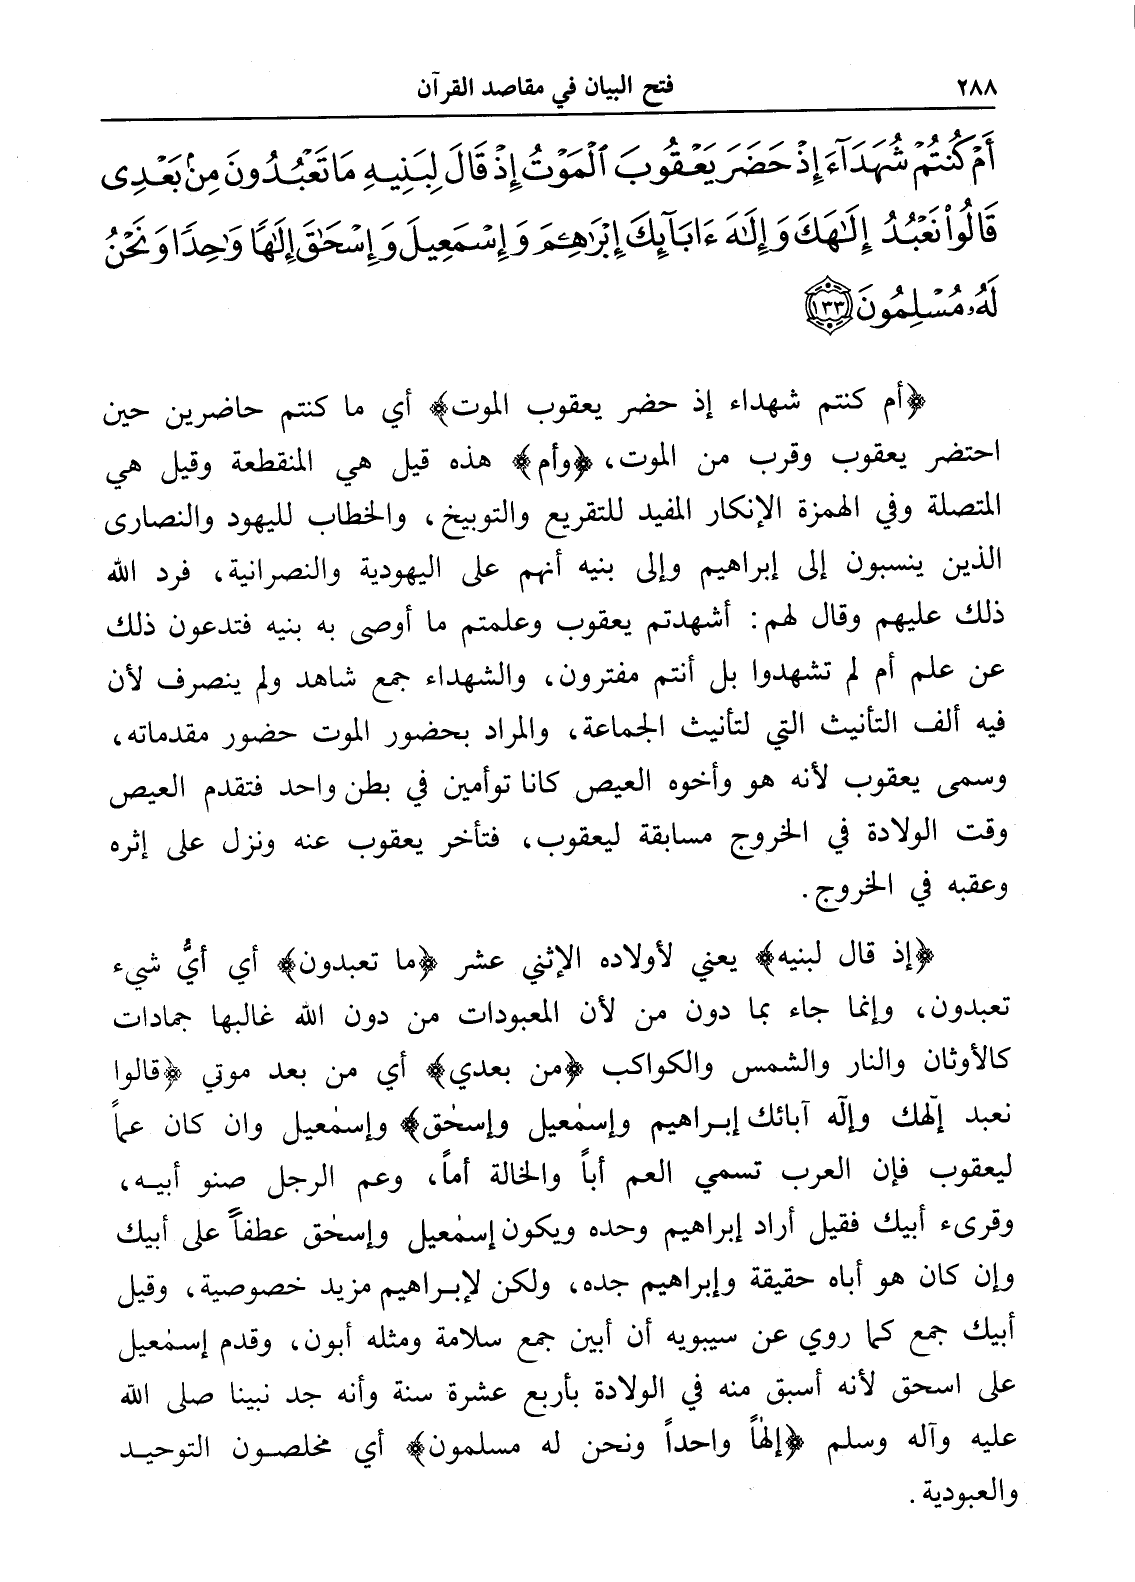 ٢٨٨ فتح البيان في مقاصد القرآن
أَمْ كُنتُمْ شُهَدَآءَ إِذْ حَضَرَ يَعْقُوبَ ٱلْمَوْتُ إِذْ قَالَ لِبَنِيهِ مَا تَعْبُدُونَ مِنۢ بَعْدِى
قَالُوا۟ نَعْبُدُ إِلَٰهَكَ وَإِلَٰهَ ءَابَآئِكَ إِبْرَٰهِـۧمَ وَإِسْمَٰعِيلَ وَإِسْحَٰقَ إِلَٰهًا وَٰحِدًا وَنَحْنُ
لَهُۥ مُسْلِمُونَ ١٣٣
﴿أم كنتم شهداء إذ حضر يعقوب الموت﴾ أي ما كنتم حاضرين حين
احتضر يعقوب وقرب من الموت، ﴿وأم﴾ هذه قيل هي المنقطعة وقيل هي
المتصلة وفي الهمزة الإنكار المفيد للتقريع والتوبيخ، والخطاب لليهود والنصارى
الذين ينسبون إلى إبراهيم وإلى بنيه أنهم على اليهودية والنصرانية، فرد الله
ذلك عليهم وقال لهم: أشهدتم يعقوب وعلمتم ما أوصى به بنيه فتدعون ذلك
عن علم أم لم تشهدوا بل أنتم مفترون، والشهداء جمع شاهد ولم ينصرف لأن
فيه ألف التأنيث التي لتأنيث الجماعة، والمراد بحضور الموت حضور مقدماته،
وسمى يعقوب لأنه هو وأخوه العيص كانا توأمين في بطن واحد فتقدم العيص
وقت الولادة في الخروج مسابقة ليعقوب، فتأخر يعقوب عنه ونزل على إثره
وعقبه في الخروج.
﴿إذ قال لبنيه﴾ يعني لأولاده الإثني عشر ﴿ما تعبدون﴾ أي أيُّ شيء
تعبدون، وإنما جاء بما دون من لأن المعبودات من دون الله غالبها جمادات
كالأوثان والنار والشمس والكواكب ﴿من بعدي﴾ أي من بعد موتي ﴿قالوا
نعبد إلٓهك وإلٓه آبائك إبراهيم وإسمٰعيل وإسحٰق﴾ وإسمٰعيل وان كان عماً
ليعقوب فإن العرب تسمي العم أباً والخالة أماً، وعم الرجل صنو أبيه،
وقرىء أبيك فقيل أراد إبراهيم وحده ويكون إسمٰعيل وإسحٰق عطفاً على أبيك
وإن كان هو أباه حقيقة وإبراهيم جده، ولكن لإبراهيم مزيد خصوصية، وقيل
أبيك جمع كما روي عن سيبويه أن أبين جمع سلامة ومثله أبون، وقدم إسمٰعيل
على اسحق لأنه أسبق منه في الولادة بأربع عشرة سنة وأنه جد نبينا صلى الله
عليه وآله وسلم ﴿إلهاً واحداً ونحن له مسلمون﴾ أي مخلصون التوحيد
والعبودية.